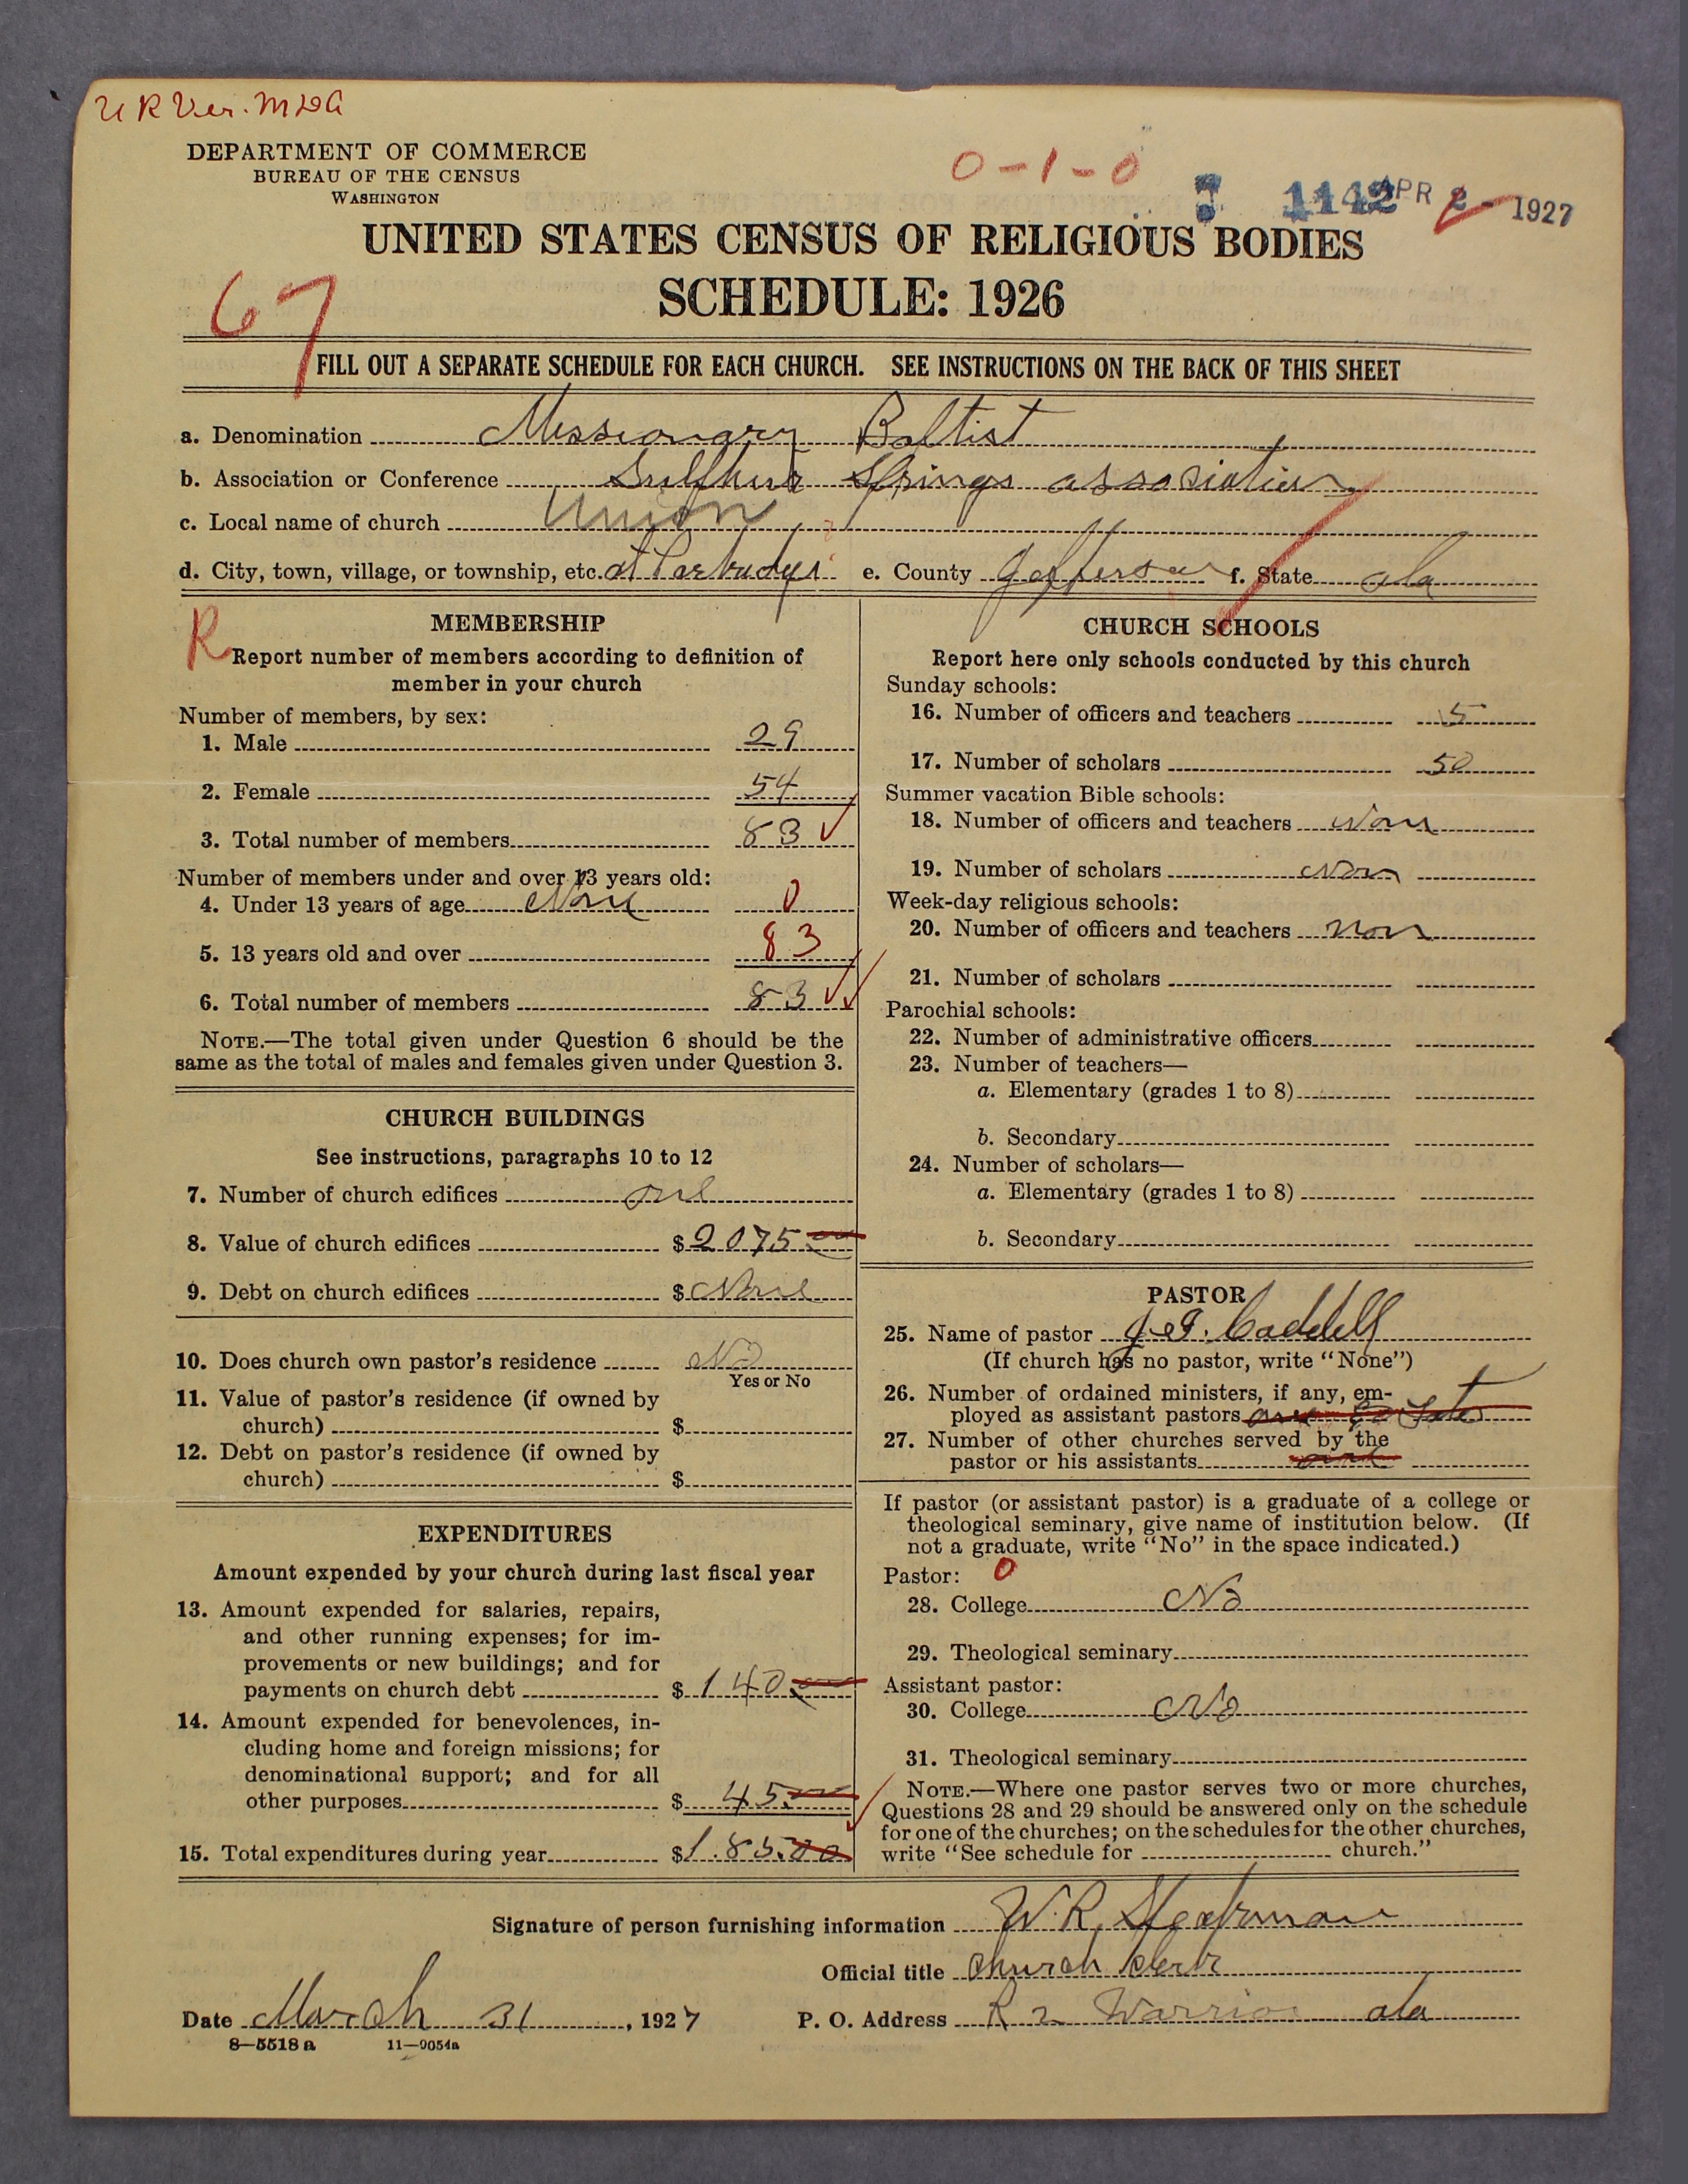 U R Ver. MDG
DEPARTMENT OF COMMERCE
BUREAU OF THE CENSUS
WASHINGTON
0-1-0
1142
APR 2 - 1927
UNITED STATES CENSUS OF RELIGIOUS BODIES
SCHEDULE: 1926
67
FILL OUT A SEPARATE SCHEDULE FOR EACH CHURCH. SEE INSTRUCTIONS ON THE BACK OF THIS SHEET
a. Denomination Messionary Baltist
b. Association or Conference Sulfhur Springs association
c. Local name of church Union
d. City, town, village, or township, etc. at e. County Jefferson f. State ala
R
MEMBERSHIP
Report number of members according to definition of
member in your church
Number of members, by sex:
1. Male 29
2. Female 54
3. Total number of members 83
Number of members under and over 13 years old:
4. Under 13 years of age None 0
5. 13 years old and over 83
6. Total number of members 83
NOTE.—The total given under Question 6 should be the
same as the total of males and females given under Question 3.
CHURCH BUILDINGS
See instructions, paragraphs 10 to 12
7. Number of church edifices one
8. Value of church edifices $2075
9. Debt on church edifices $None
10. Does church own pastor's residence No
Yes or No
11. Value of pastor's residence (if owned by
church) $
12. Debt on pastor's residence (if owned by
church) $
EXPENDITURES
Amount expended by your church during last fiscal year
13. Amount expended for salaries, repairs,
and other running expenses; for im-
provements or new buildings; and for
payments on church debt $ 140
14. Amount expended for benevolences, in-
cluding home and foreign missions; for
denominational support; and for all
other purposes $ 45
15. Total expenditures during year $185.00
CHURCH SCHOOLS
Report here only schools conducted by this church
Sunday schools:
16. Number of officers and teachers 5
17. Number of scholars 50
Summer vacation Bible schools:
18. Number of officers and teachers Non
19. Number of scholars Non
Week-day religious schools:
20. Number of officers and teachers non
21. Number of scholars
Parochial schools:
22. Number of administrative officers
23. Number of teachers—
a. Elementary (grades 1 to 8)
b. Secondary
24. Number of scholars—
a. Elementary (grades 1 to 8)
b. Secondary
PASTOR
25. Name of pastor Caddell
(If church has no pastor, write "None")
26. Number of ordained ministers, if any, em-
ployed as assistant pastors
27. Number of other churches served by the
pastor or his assistants
If pastor (or assistant pastor) is a graduate of a college or
theological seminary, give name of institution below. (If
not a graduate, write "No" in the space indicated.)
Pastor: 0
28. College No
29. Theological seminary
Assistant pastor:
30. College No
31. Theological seminary
NOTE.—Where one pastor serves two or more churches,
Questions 28 and 29 should be answered only on the schedule
for one of the churches; on the schedules for the other churches,
write "See schedule for church."
Signature of person furnishing information W. R.
Official title Church clerk
Date March 31, 1927 P. O. Address R 2 Warrior ala
8—5518 a 11—9054a